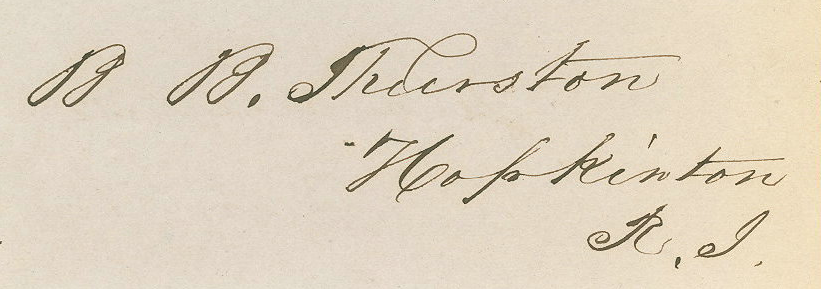 B B. Thurston
Hopkinton
R. I.